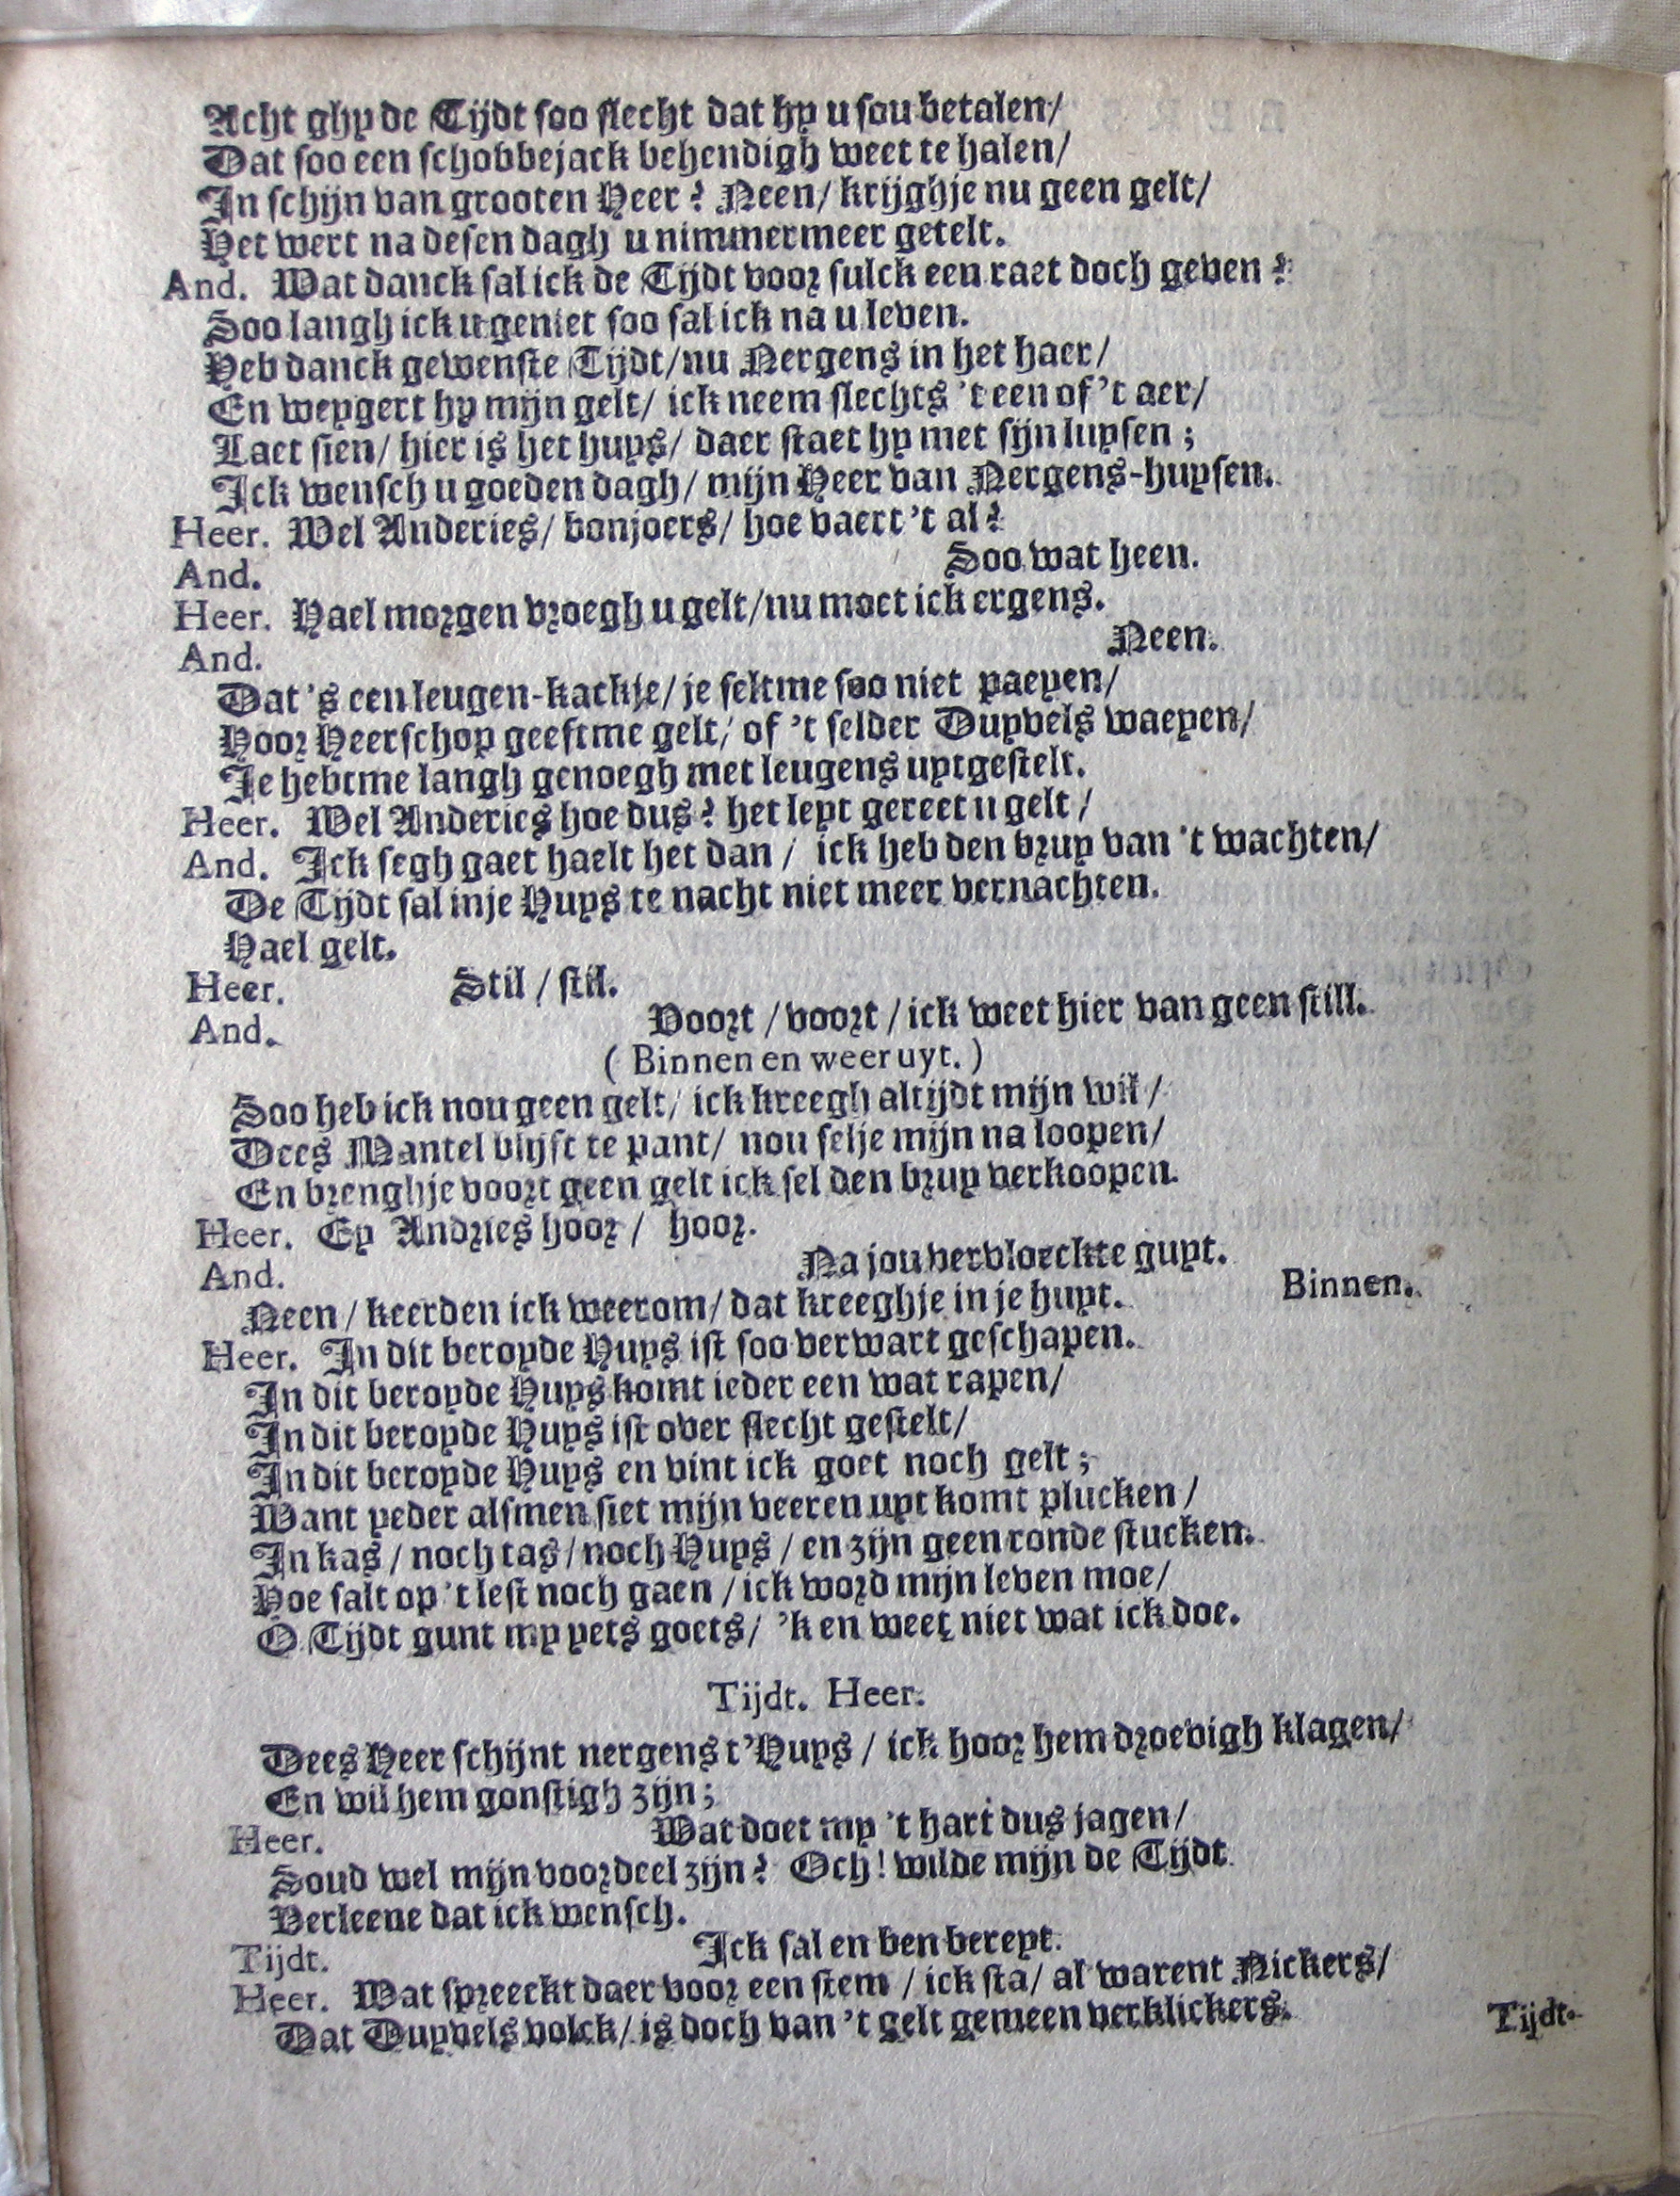 Acht ghy de Tijdt soo slecht dat hy u sou betalen/
Dat soo een schobbejack behendigh weet te halen/
In schijn van grooten Heer? Neen/ krijghje nu geen gelt/
Het wert na desen dagh u nimmermeer getelt.
And. Wat danck sal ick de Tijdt voor sulck een raet doch geven?
Soo langh ick u geniet soo sal ick na u leven.
Heb danck gewenste Tijdt/ nu Nergens in het haer/
En weygert hy mijn gelt/ ick neem slechts 't een of 't aer/
Laet sien/ hier is het huys/ daer staet hy met sijn luysen;
Ick wensch u goeden dagh/ mijn Heer van Nergens-huysen.
Heer. Wel Anderies/ bonjoers/ hoe vaert 't al?
And. Soo wat heen.
Heer. Hael morgen vroegh u gelt/ nu moet ick ergens.
And. Neen.
Dat 's een leugen-kackje/ je seltme soo niet paeyen/
Hoor Heerschop geeftme gelt/ of 't selder Duyvels waeyen/
Je hebtme langh genoegh met leugens uytgestelt.
Heer. Wel Anderies hoe dus? het leyt gereet u gelt/
And. Ick segh gaet haelt het dan/ ick heb den bruy van 't wachten/
De Tijdt sal in je Huys te nacht niet meer vernachten.
Hael gelt.
Heer. Stil/ stil.
And. Voort/ voort/ ick weet hier van geen still.
(Binnen en weer uyt.)
Soo heb ick nou geen gelt/ ick kreegh altijdt mijn wil/
Dees Mantel blijft te pant/ nou selje mijn na loopen/
En brenghje voort geen gelt ick sel den bruy verkoopen.
Heer. Ey Andries hoor/ hoor.
And. Na jou vervloeckte guyt.
Neen/ keerden ick weerom/ dat kreeghje in je huyt. Binnen.
Heer. In dit beroyde Huys ist soo verwart geschapen.
In dit beroyde Huys komt ieder een wat rapen/
In dit beroyde Huys ist over slecht gestelt/
In dit beroyde Huys en vint ick goet noch gelt;
Want yeder alsmen siet mijn veeren uyt komt plucken/
In kas/ noch tas/ noch Huys/ en zijn geen ronde stucken.
Hoe salt op 't lest noch gaen/ ick word mijn leven moe/
O Tijdt gunt my yets goets/ 'k en weet niet wat ick doe.
Tijdt. Heer.
Dees Heer schijnt nergens t'Huys/ ick hoor hem droevigh klagen/
En wil hem gonstigh zijn;
Heer. Wat doet my 't hart dus jagen/
Soud wel mijn voordeel zijn? Och! wilde mijn de Tijdt
Verleene dat ick wensch.
Tijdt. Ick sal en ben bereyt.
Heer. Wat spreeckt daer voor een stem/ ick sta/ al warent Nickers/
Dat Duyvels volck/ is doch van 't gelt gemeen verklickers.
Tijdt.